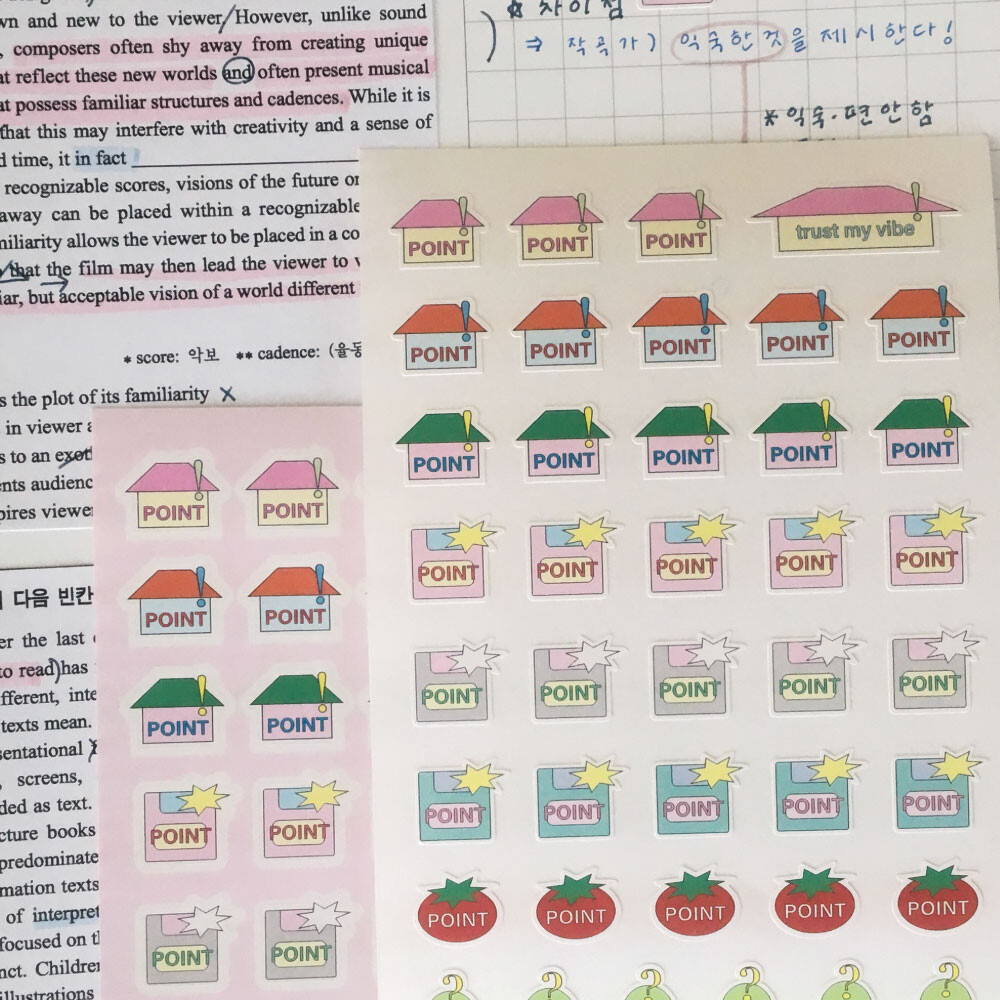 wn and new to the viewer/However, unlike sound
, composers often shy away from creating unique
at reflect these new worlds and often present musical
at possess familiar structures and cadences. While it is
that this may interfere with creativity and a sense of
d time, it in fact
recognizable scores, visions of the future or
away can be placed within a recognizable
miliarity allows the viewer to be placed in a co
that the film may then lead the viewer to v
iar, but acceptable vision of a world different
* score: 악보 ** cadence: (율동
s the plot of its familiarity X
in viewer a
s to an exot
ents audienc
pires viewer
다음 빈칸
er the last
to read)has
fferent, inte
texts mean.
sentational
, screens,
ded as text.
cture books
predominate
mation texts
of interpret
focused on th
nct. Children
illustrations
* 차이점
⇒ 작곡가) 익숙한 것을 제시한다!
* 익숙·편안함
POINT POINT POINT trust my vibe
POINT POINT POINT POINT POINT
POINT POINT POINT POINT POINT
POINT POINT POINT POINT POINT
POINT POINT POINT POINT POINT
POINT POINT POINT POINT POINT
POINT POINT POINT POINT POINT
? ? ? ? ?
POINT POINT
POINT POINT
POINT POINT
POINT POINT
POINT POINT